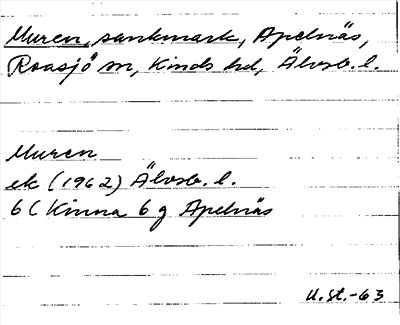 Muren, sankmark, Apelnäs,
Roasjö sn, Kinds hd, Älvsb. l.
Muren
ek (1962) Älvsb. l.
6C Kinna 6g Apelnäs
U.St.-63